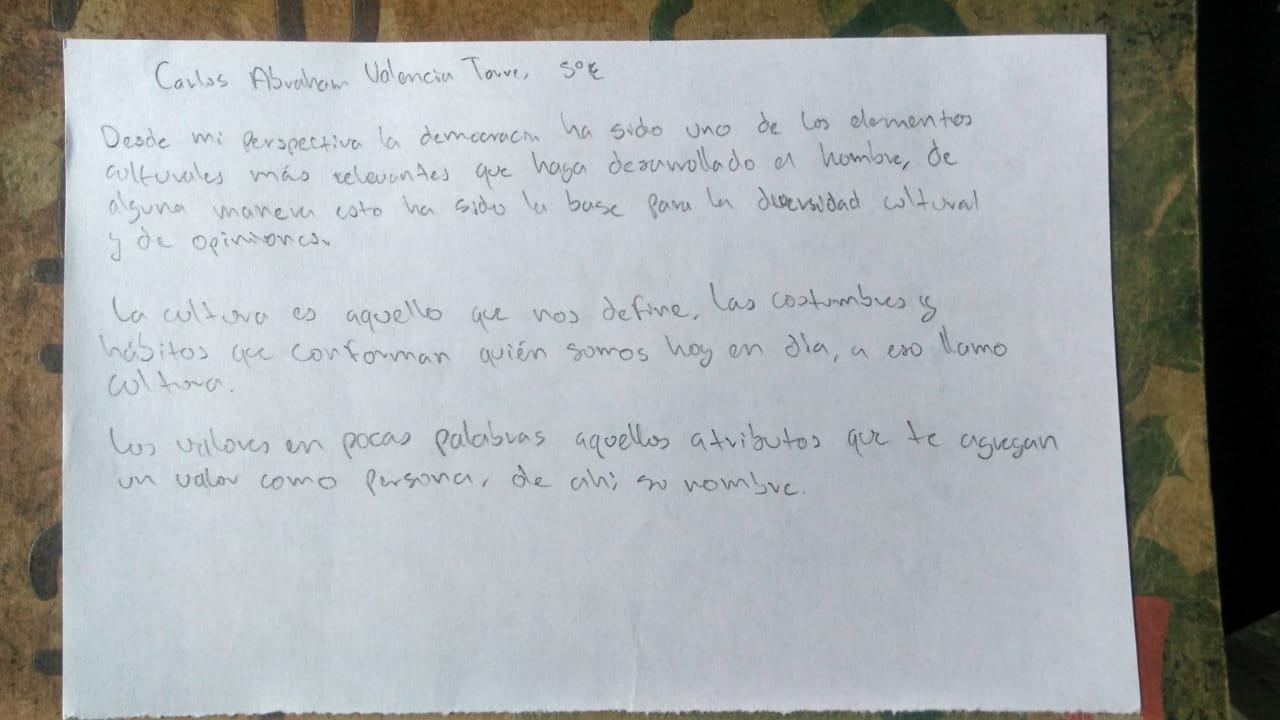 Carlos Abraham Valencia Torre, 5°E
Desde mi perspectiva la democracia ha sido uno de los elementos
culturales más relevantes que haga desarrollado el hombre, de
alguna manera esto ha sido la base para la diversidad cultural
y de opiniones.
La cultura es aquello que nos define, las costumbres y
hábitos que conforman quién somos hoy en día, a eso llamo
cultura.
Los valores en pocas palabras aquellos atributos que te agregan
un valor como persona, de ahí su nombre.